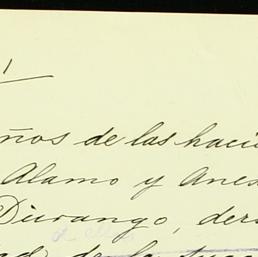 ños de las haci
Alamo y Anes
Durango, der
de la suce